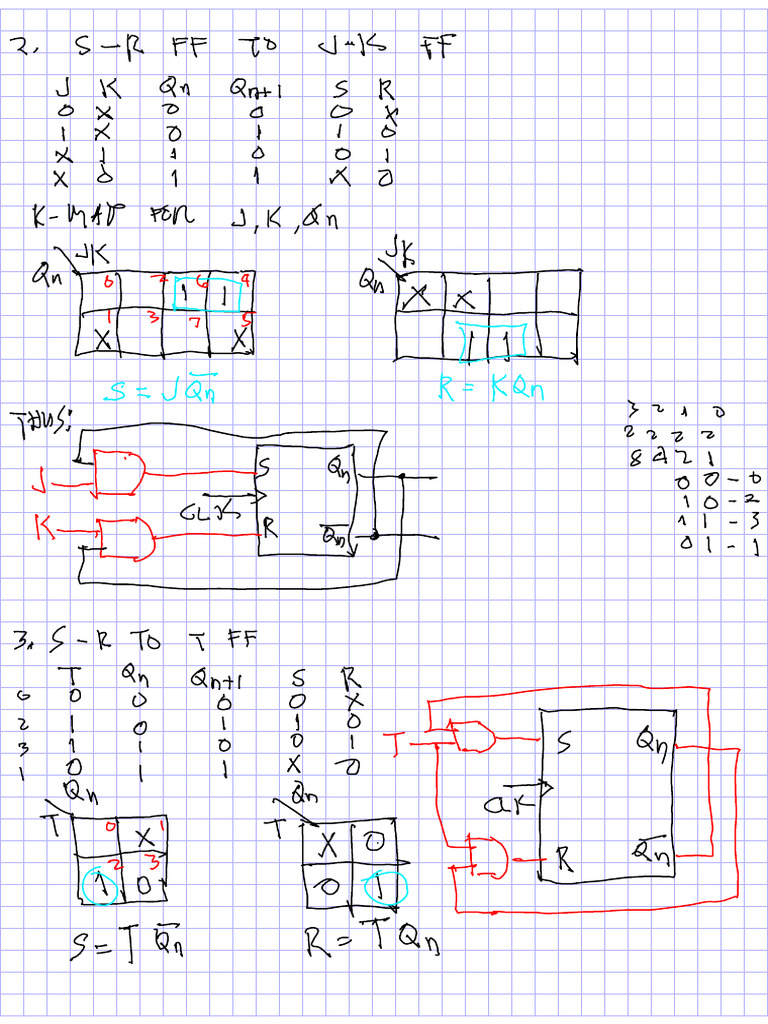 2. S-R FF TO J-K FF
J K Qn Qn+1 S R
0 X 0 0 0 X
1 X 0 1 1 0
X 1 1 0 0 1
X 0 1 1 X 0
K-MAP FOR J, K, Qn
JK
Qn
0 2 6 4
1 1
1 3 7 5
X X
S = JQ̅n̅
JK
Qn
X X
1 1
R = KQn
THUS:
J
K
S Qn
CLK
R Q̅n̅
3 2 1 0
2 2 2 2
8 4 2 1
0 0 - 0
1 0 - 2
1 1 - 3
0 1 - 1
3. S-R TO T FF
T Qn Qn+1 S R
0 0 0 0 0 X
2 1 0 1 1 0
3 1 1 0 0 1
1 0 1 1 X 0
Qn
T
0 X 1
2 3
1 0
S = T Q̅n
Qn
T
X 0
0 1
R = T Qn
T
S Qn
C̅L̅K̅
R Q̅n̅